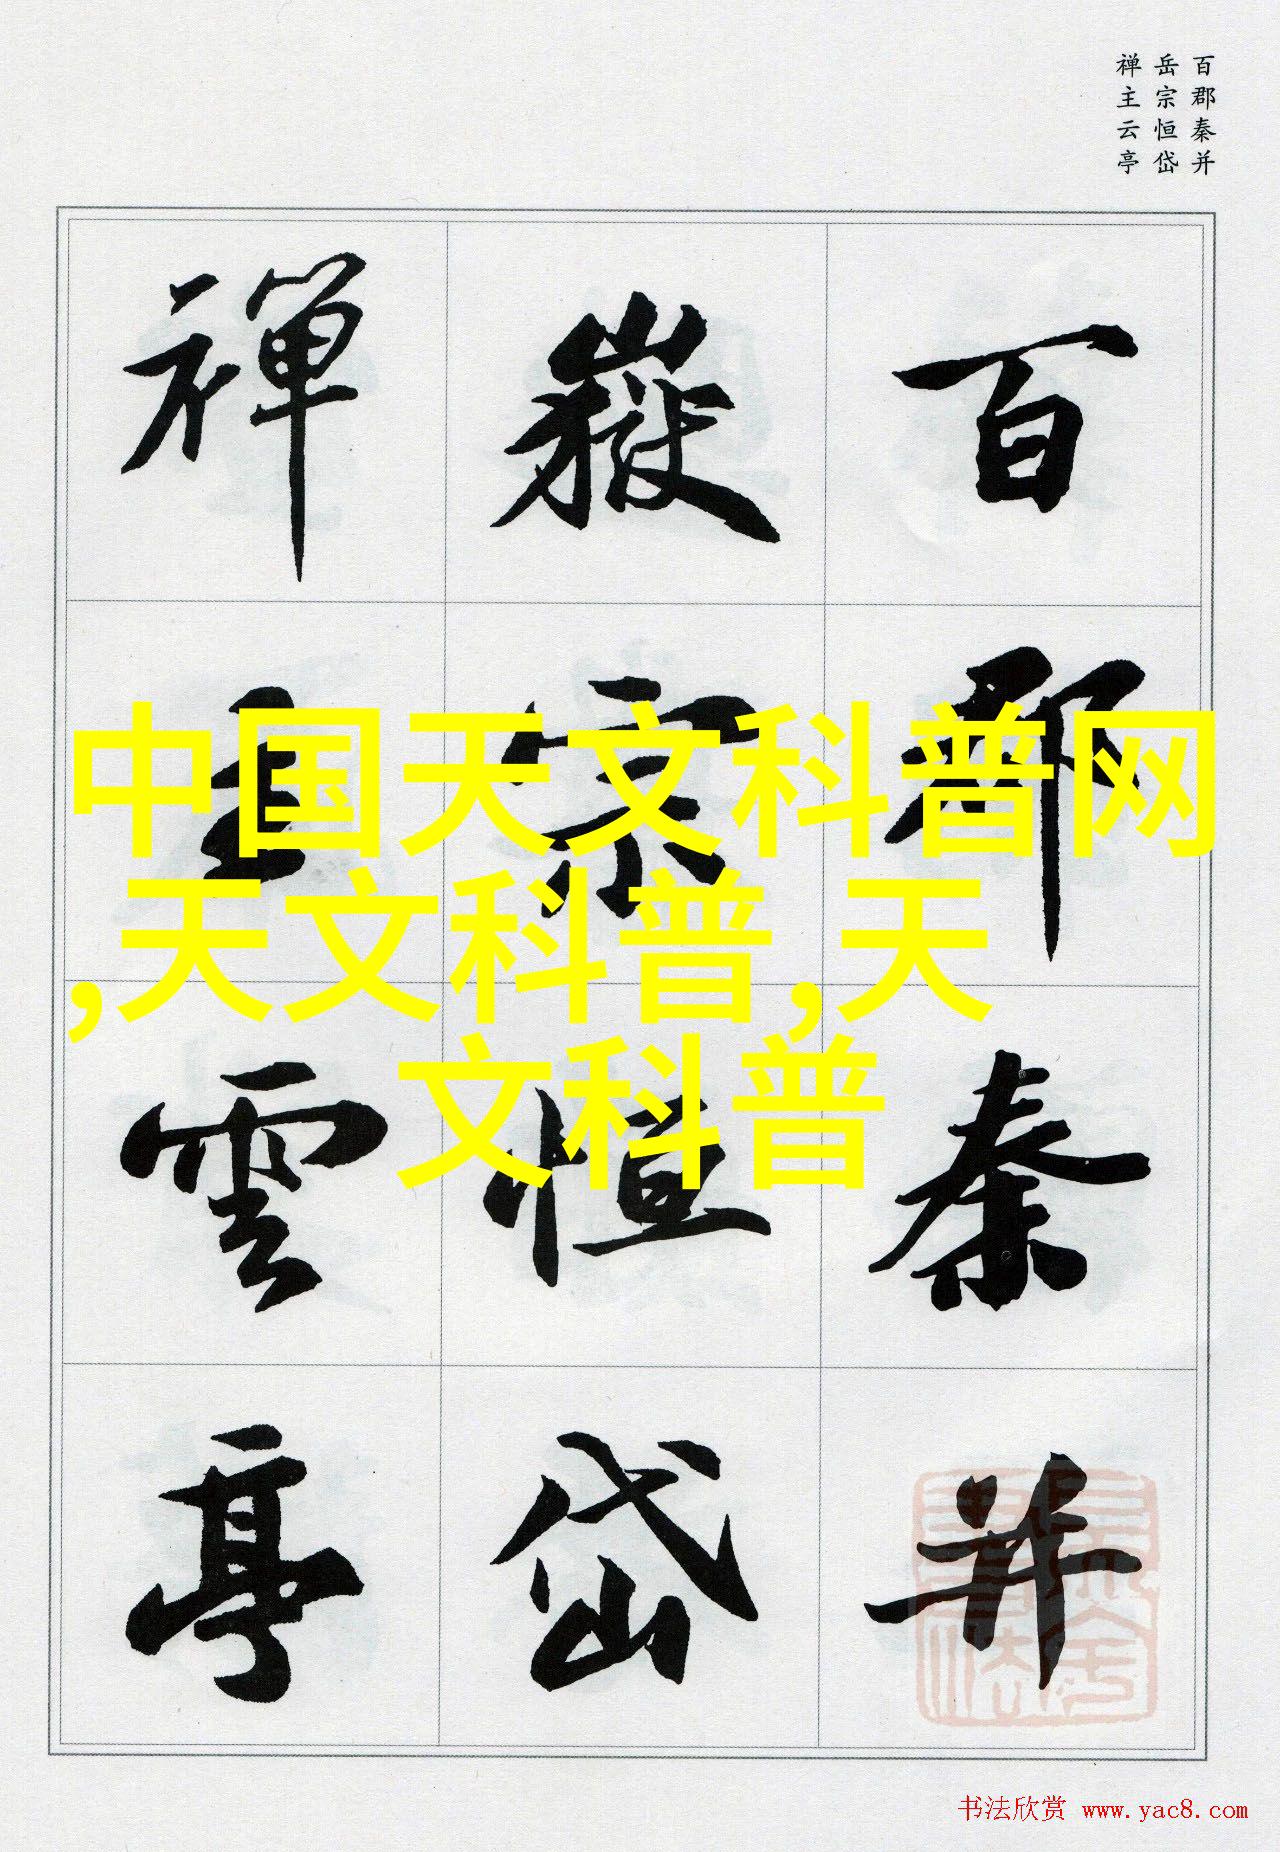 百郡秦并
岳宗恒岱
禅主云亭
百郡秦并
嶽宗恒岱
禅主雲亭
中国天文科普网
,天文科普,天
文科普
书法欣赏 www.yac8.com